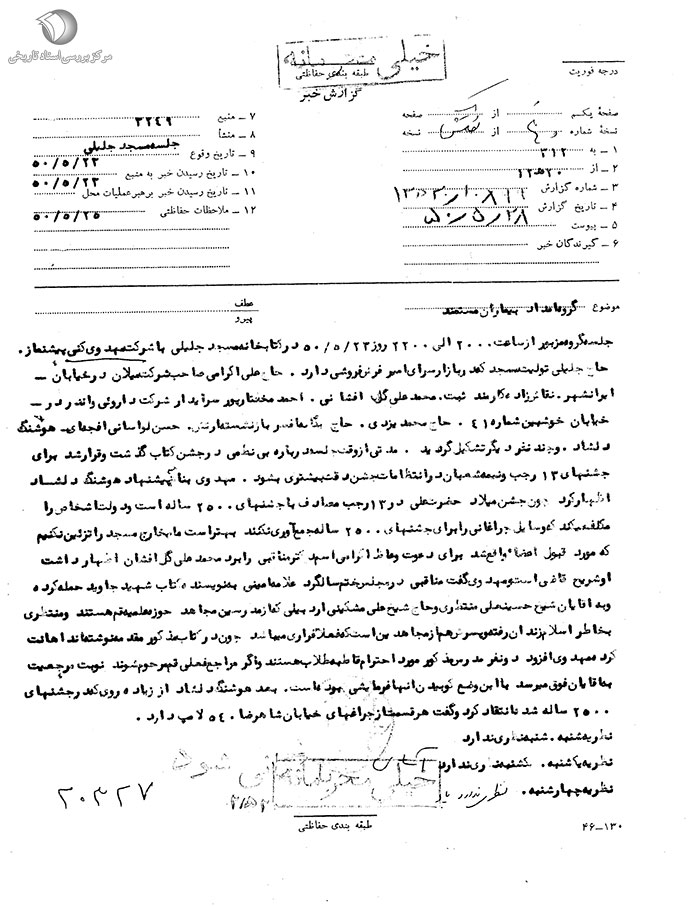 مرکز بررسی اسناد تاریخی
خیلی محرمانه
طبقه بندی حفاظتی
گزارش خبر
درجه فوریت
صفحهٔ یکم از یک صفحه
نسخهٔ شماره از نسخه
۱ ـ به ۳۱۲
۲ ـ از ۲۰ ه ۱۲
۳ ـ شماره گزارش
۴ ـ تاریخ گزارش ۵۰/۵/۲۸
۵ ـ پیوست
۶ ـ گیرندگان خبر
۷ ـ منبع ۳۲۴۹
۸ ـ منشأ جلسه مسجد جلیلی
۹ ـ تاریخ وقوع ۵۰/۵/۲۳
۱۰ ـ تاریخ رسیدن خبر به منبع ۵۰/۵/۲۳
۱۱ ـ تاریخ رسیدن خبر برهبر عملیات محل
۱۲ ـ ملاحظات حفاظتی ۵۰/۵/۲۵
موضوع گروه امداد بیماران مستمند
عطف
پیرو
جلسه گروه مزبور از ساعت ۲۰۰۰ الی ۲۲۰۰ روز ۵۰/۵/۲۳ در کتابخانه مسجد جلیلی با شرکت مهدوی کنی پیشنماز .
حاج جلیلی تولیت مسجد که در بازار سرای امیر فرش فروشی دارد . حاج علی اکرامی صاحب شرکت میلان در خیابان ـ
ایرانشهر . نقاش زاده کارمند ثبت . محمد علی گل افشانی . احمد مختارپور سرایدار شرکت داروئی واندر در ـ
خیابان خوشبین شماره ۴۱ . حاج محمد یزدی . حاج افسر بازنشسته ارتش . حسن لواسانی افجه‌ای ـ هوشنگ
دلشاد . و چند نفر دیگر تشکیل گردید . مدتی از وقت جلسه درباره بی نظمی در جشن کتاب گذشت و قرار شد برای
جشنهای ۱۳ رجب و نیمه شعبان در انتظامات جشن دقت بیشتری بشود . مهدوی بنا به پیشنهاد هوشنگ دلشاد
اظهار کرد چون جشن میلاد حضرت علی در ۱۳ رجب مصادف با جشنهای ۲۵۰۰ ساله است و دولت اشخاص را
مکلف میکند که وسایل چراغانی را برای جشنهای ۲۵۰۰ ساله جمع آوری نکنند بهتر است ما بخارج مسجد را تزئین نکنیم
که مورد قبول اعضا واقع شد برای دعوت وعاظ اکرامی اسم دکتر مناقبی را برد محمد علی گل افشان اظهار داشت
او شریح قاضی است و مهدوی گفت مناقبی در مجلس ختم سالگرد علامه امینی به نویسنده کتاب شهید جاوید حمله کرده
و به اقایان شیخ حسینعلی منتظری و حاج شیخ علی مشکینی اردبیلی که از مدرسین مجاهد حوزه علمیه قم هستند و منتظری
بخاطر اسلام زندان رفته و پسرش هم از مجاهدین است که فعلا فراری میباشد چون در کتاب مذکور مقدمه نوشته‌اند اهانت
کرد مهدوی افزود دو نفر مدرس مذکور مورد احترام قاطبه طلاب هستند و اگر مراجع فعلی قم مرحوم شوند نوبت مرجعیت
به اقایان فوق میرسد با این وضع کوبیدن انها فرمایشی بوده است . بعد هوشنگ دلشاد از زیاده روی که در جشنهای
۲۵۰۰ ساله شده انتقاد کرد و گفت هر قسمت از چراغهای خیابان شاهرضا ۵۴۰ لامپ دارد .
نظریه شنبه . شنبه نظری ندارد
نظریه یکشنبه . یکشنبه نظری ندارد
نظریه چهارشنبه . نظری ندارد
خیلی محرمانه
۲۰۳۲۷
طبقه بندی حفاظتی
۴۶ـ۱۳۰